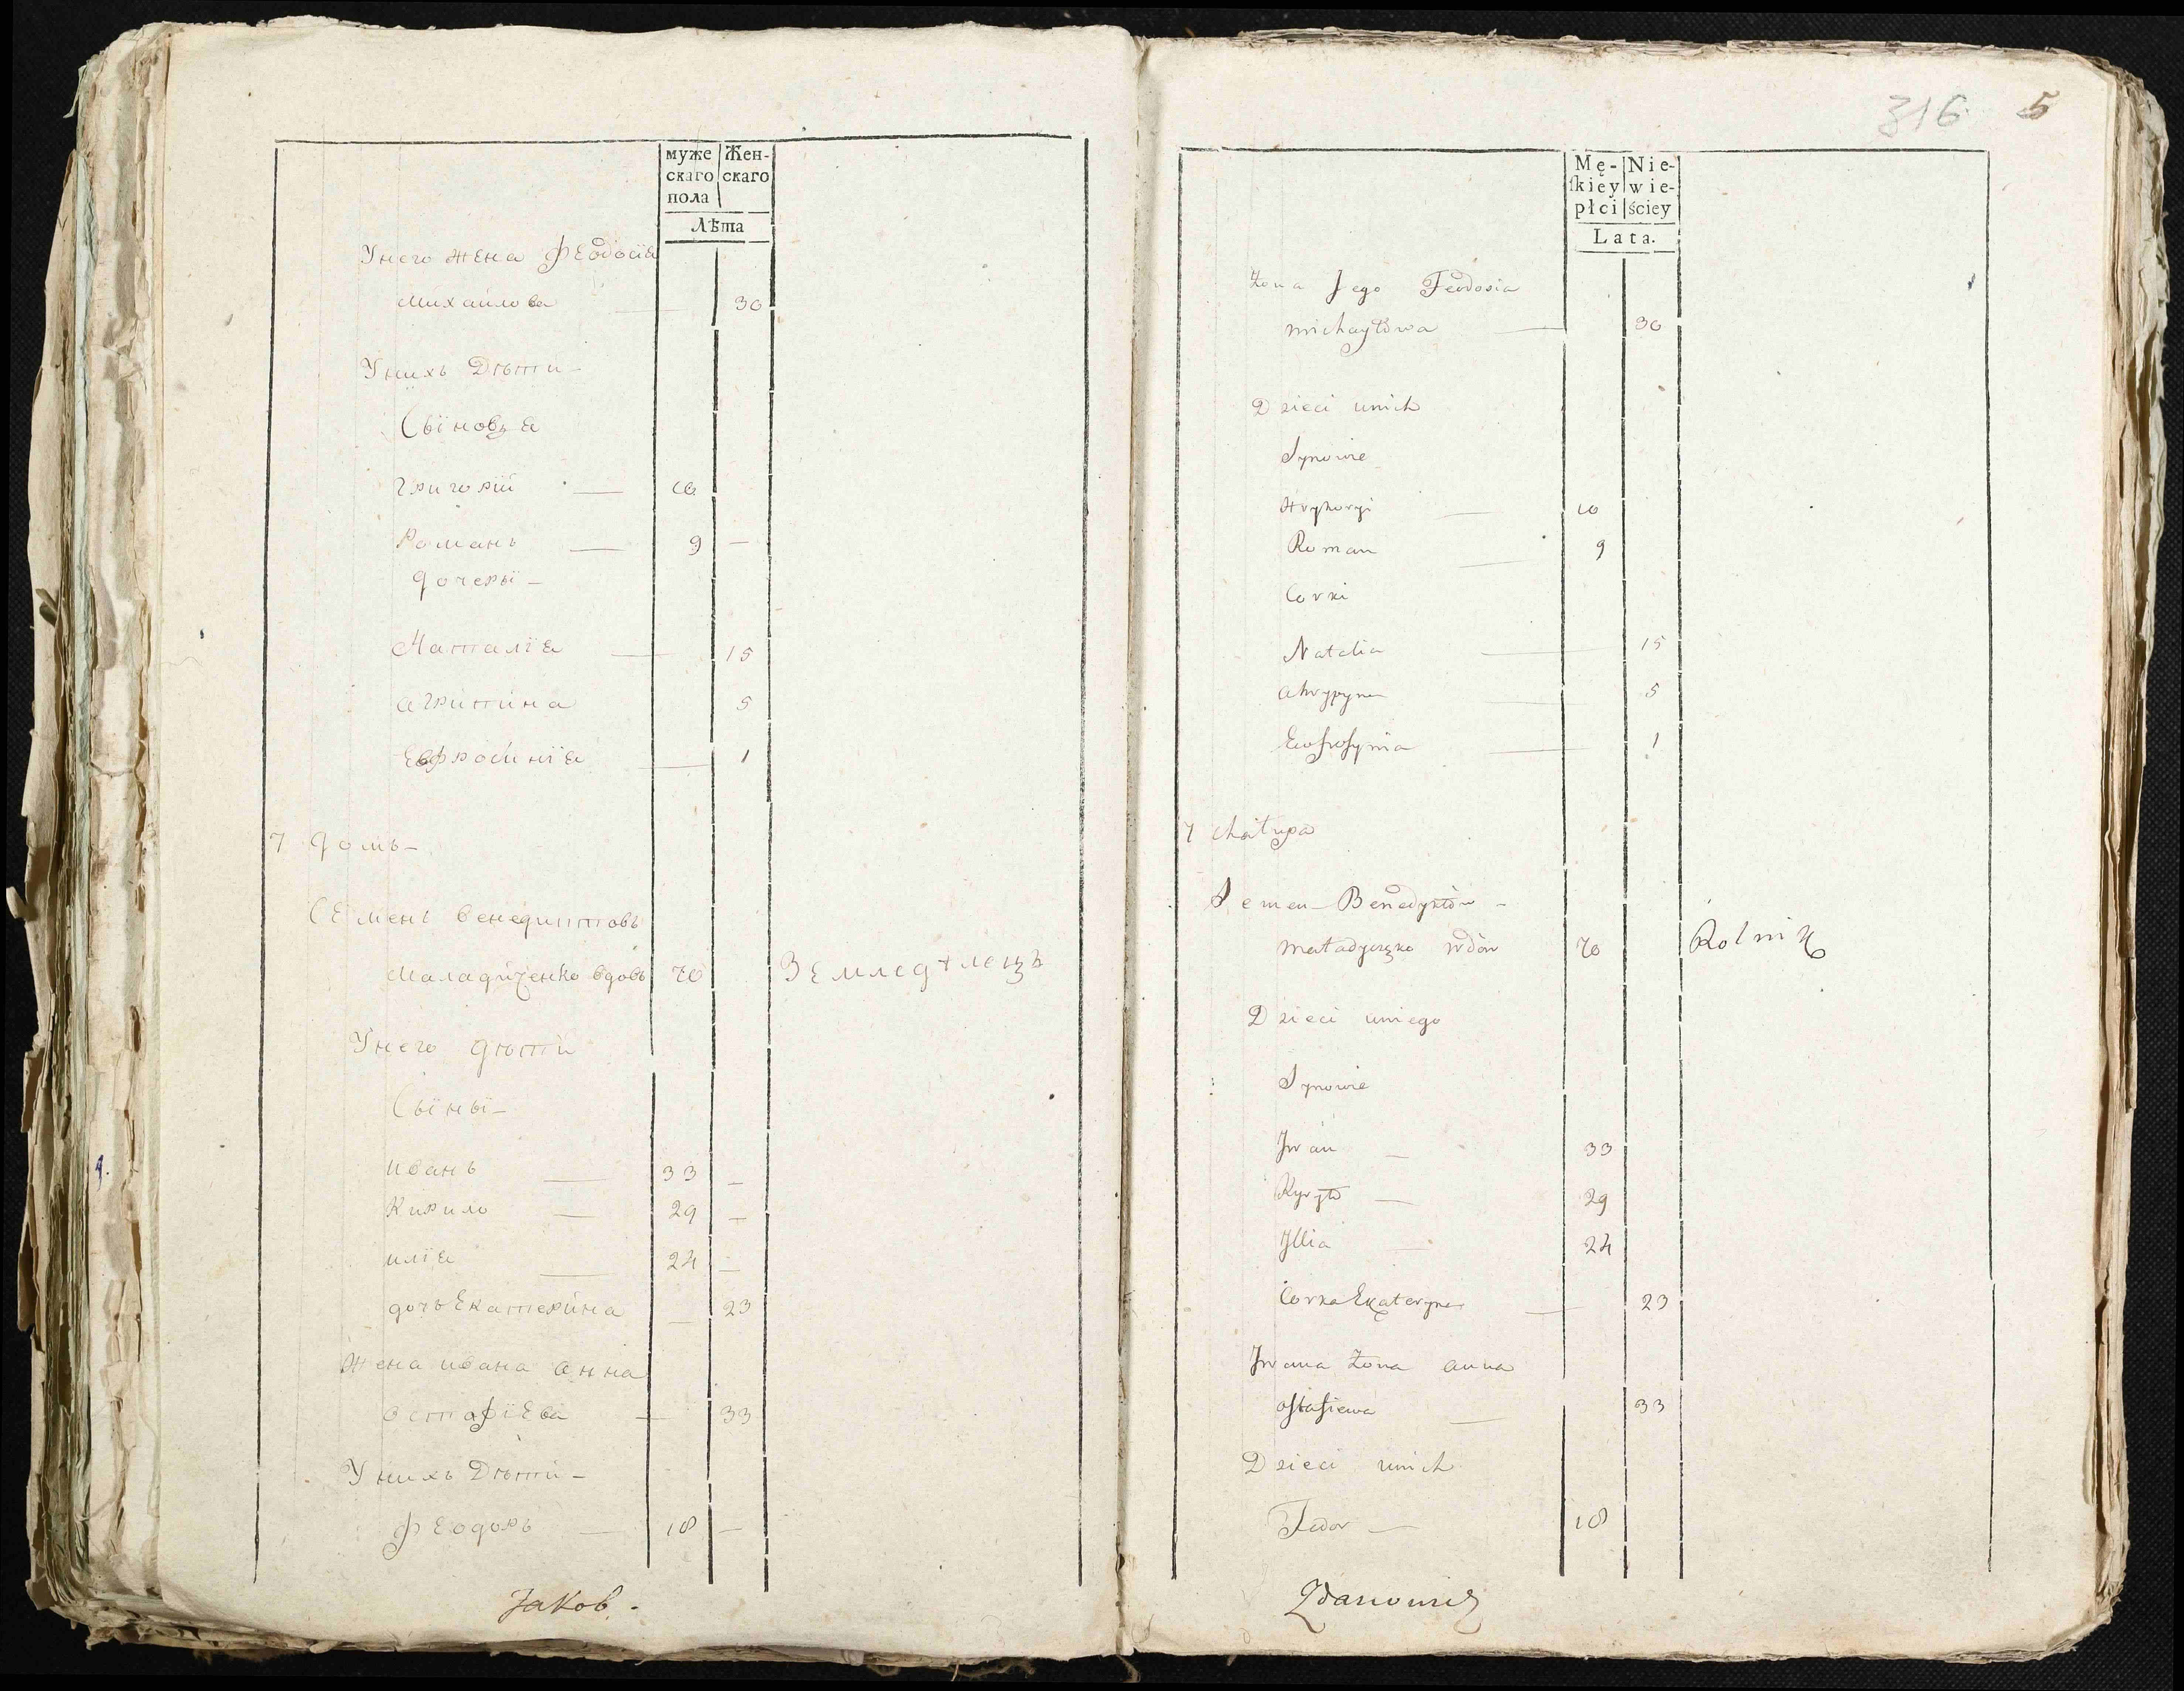 муже Жен-
скаго скаго
пола
Лѣта
Унего жена Феодосiя
Михайлова — 30
Унихъ Дѣти -
Сыновья
Григорiй — 10
Романъ — 9 —
дочеры -
Наталiя — 15
агрипина 5
Евфросинiя — 1
7 домъ -
Семенъ Венедиктовъ
Маладиченко вдовъ 70 Земледѣлецъ
Унего дѣти
Сыны -
иванъ — 33 —
Кирило — 29 —
илiя — 24 —
дочь Екатерина — 23
Жена ивана анна
остафiева — 33
Унихъ Дѣти -
Феодоръ — 18 —
Jakob.
316 5
Mę- Nie-
ſkiey wie-
płci ściey
Lata.
Żona Jego Feodosia
michayłowa — 30
Dzieci unich
Synowie
Hryhoryi — 10
Roman — 9
Corki
Natalia — 15
ahrypyna — 5
Ewfroſynia — 1
7 chałupa
Semen Benedyktów -
maładyczko wdow 70 Rolnik
Dzieci uniego
Synowie
Jwan — 33
Kyryło — 29
Jllia — 24
Corka Ekateryna — 23
Jwana Żona anna
oſtafiewa — 33
Dzieci unich
Fedor — 18
Zdanowicz